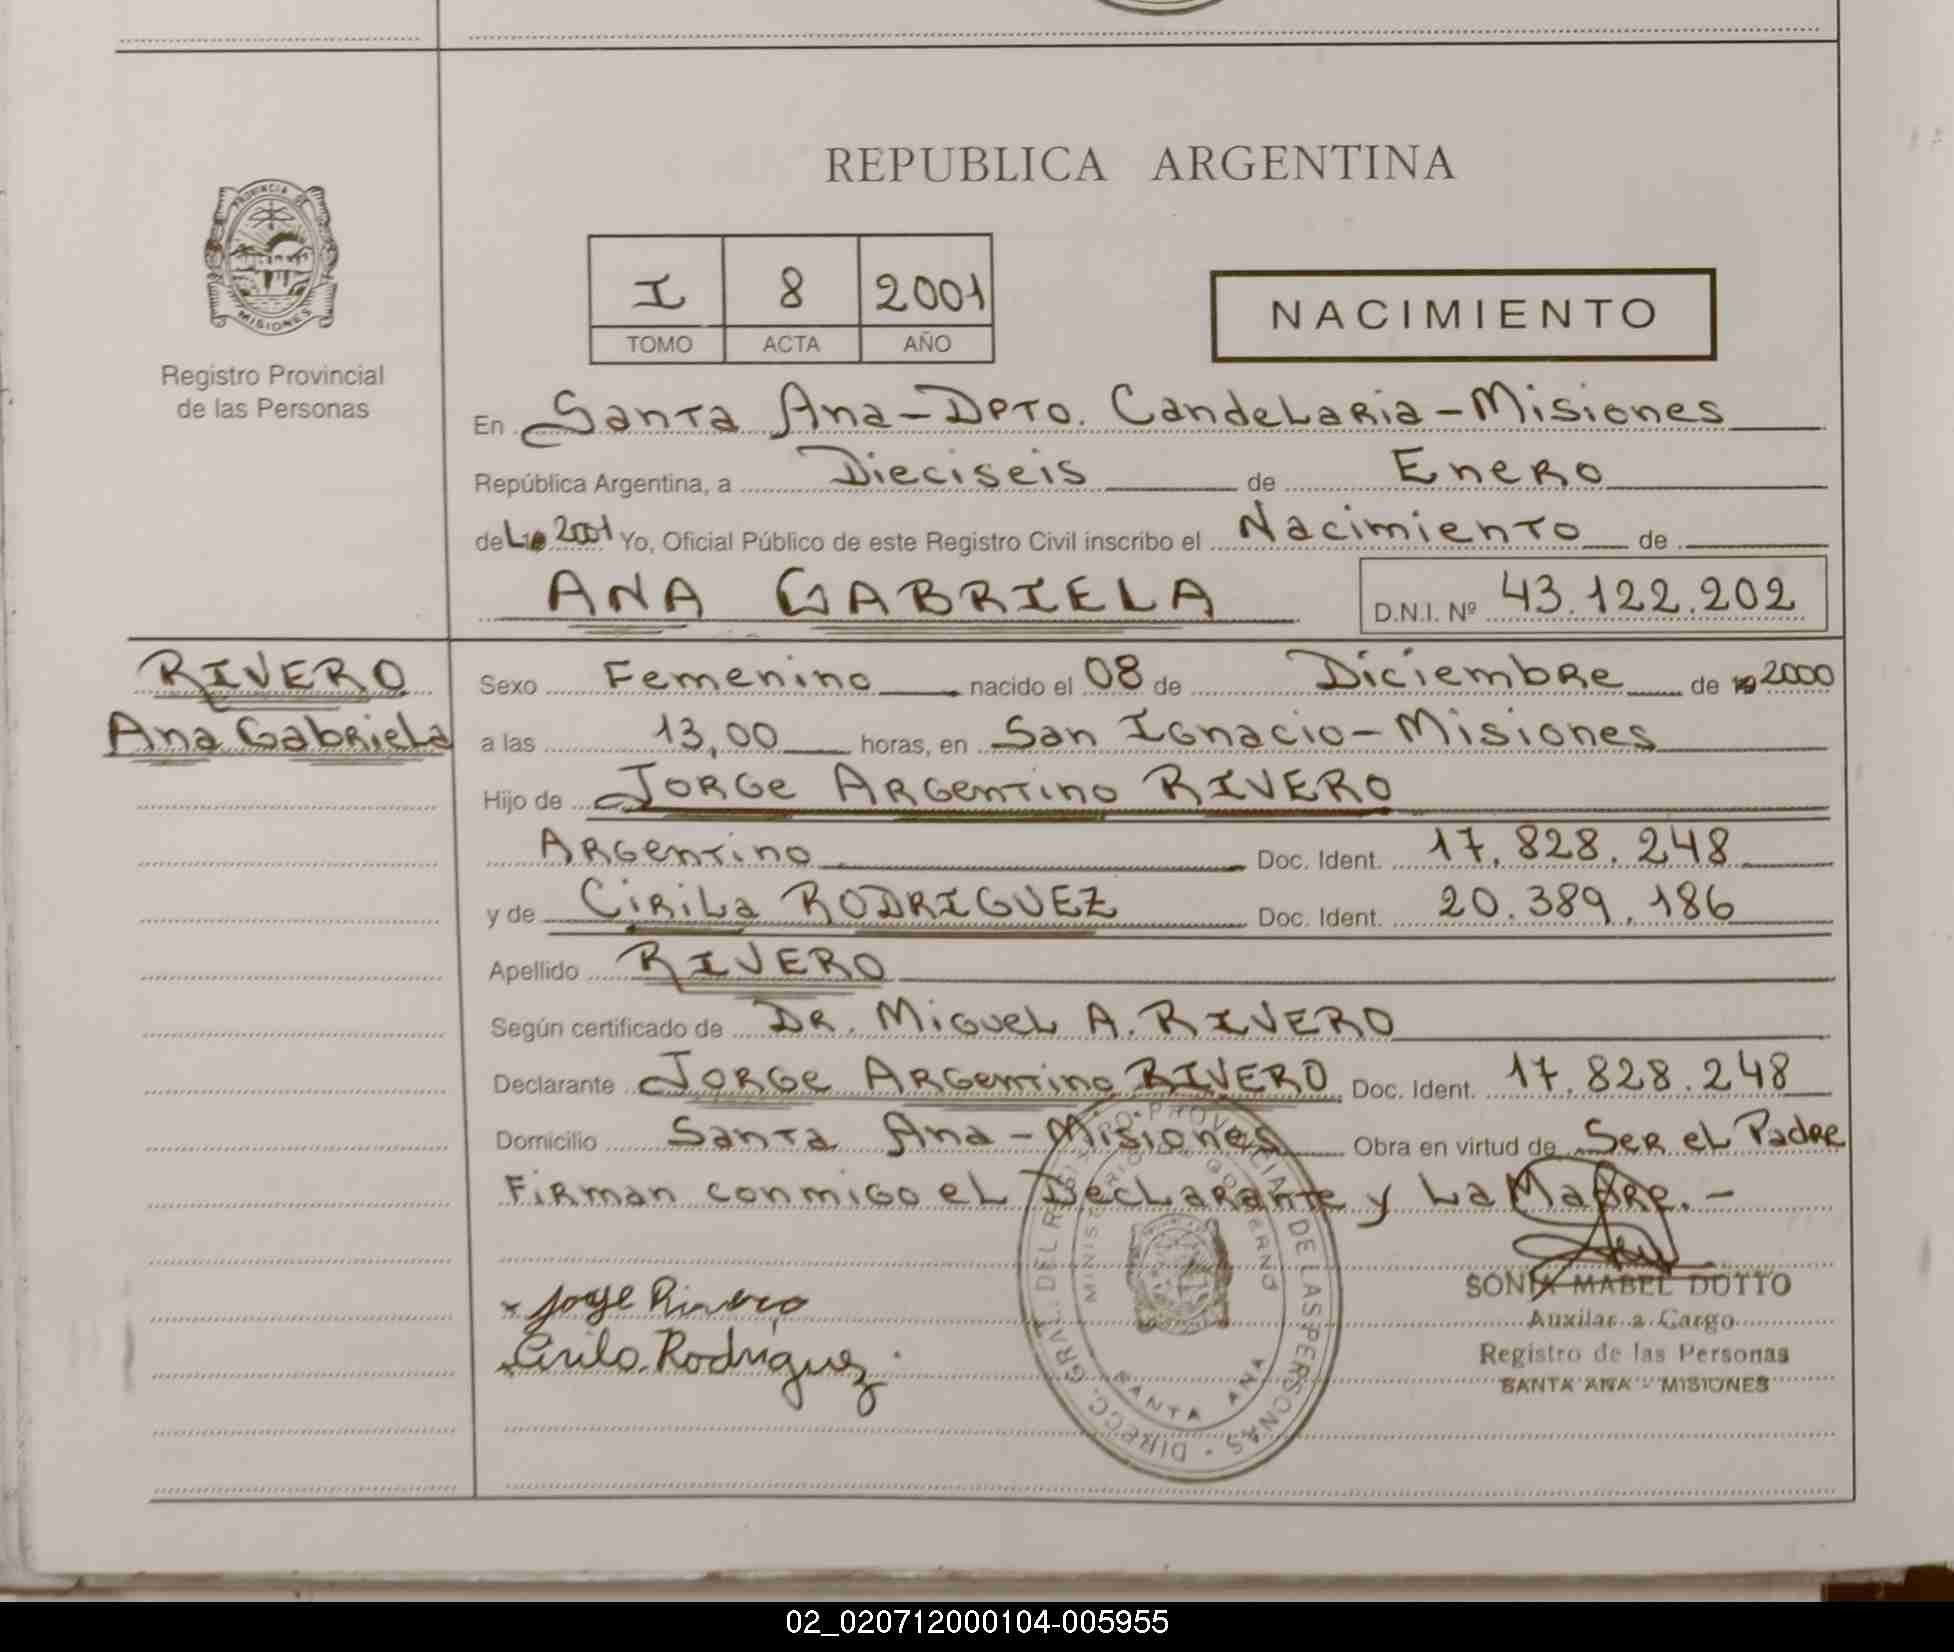 REPUBLICA ARGENTINA
PROVINCIA DE
MISIONES
Registro Provincial
de las Personas
I 8 2001
TOMO ACTA AÑO
NACIMIENTO
En Santa Ana - Dpto. Candelaria - Misiones
República Argentina, a Dieciseis de Enero
del 2001 Yo, Oficial Público de este Registro Civil inscribo el Nacimiento de
ANA GABRIELA D.N.I. Nº 43.122.202
RIVERO
Ana Gabriela
Sexo Femenino nacido el 08 de Diciembre de 2000
a las 13,00 horas, en San Ignacio - Misiones
Hijo de Jorge Argentino RIVERO
Argentino Doc. Ident. 17.828.248
y de Cirila RODRIGUEZ Doc. Ident. 20.389.186
Apellido RIVERO
Según certificado de DR. Miguel A. RIVERO
Declarante Jorge Argentino RIVERO Doc. Ident. 17.828.248
Domicilio Santa Ana - Misiones Obra en virtud de Ser el Padre
Firman conmigo el Declarante y La Madre. -
Jorge Rivero
Cirila Rodriguez
DIRECC. GRAL. DEL REGISTRO PROVINCIAL DE LAS PERSONAS
MINISTERIO DE GOBIERNO
SANTA ANA
SONIA MABEL DOTTO
Auxiliar a Cargo
Registro de las Personas
SANTA ANA - MISIONES
02_020712000104-005955